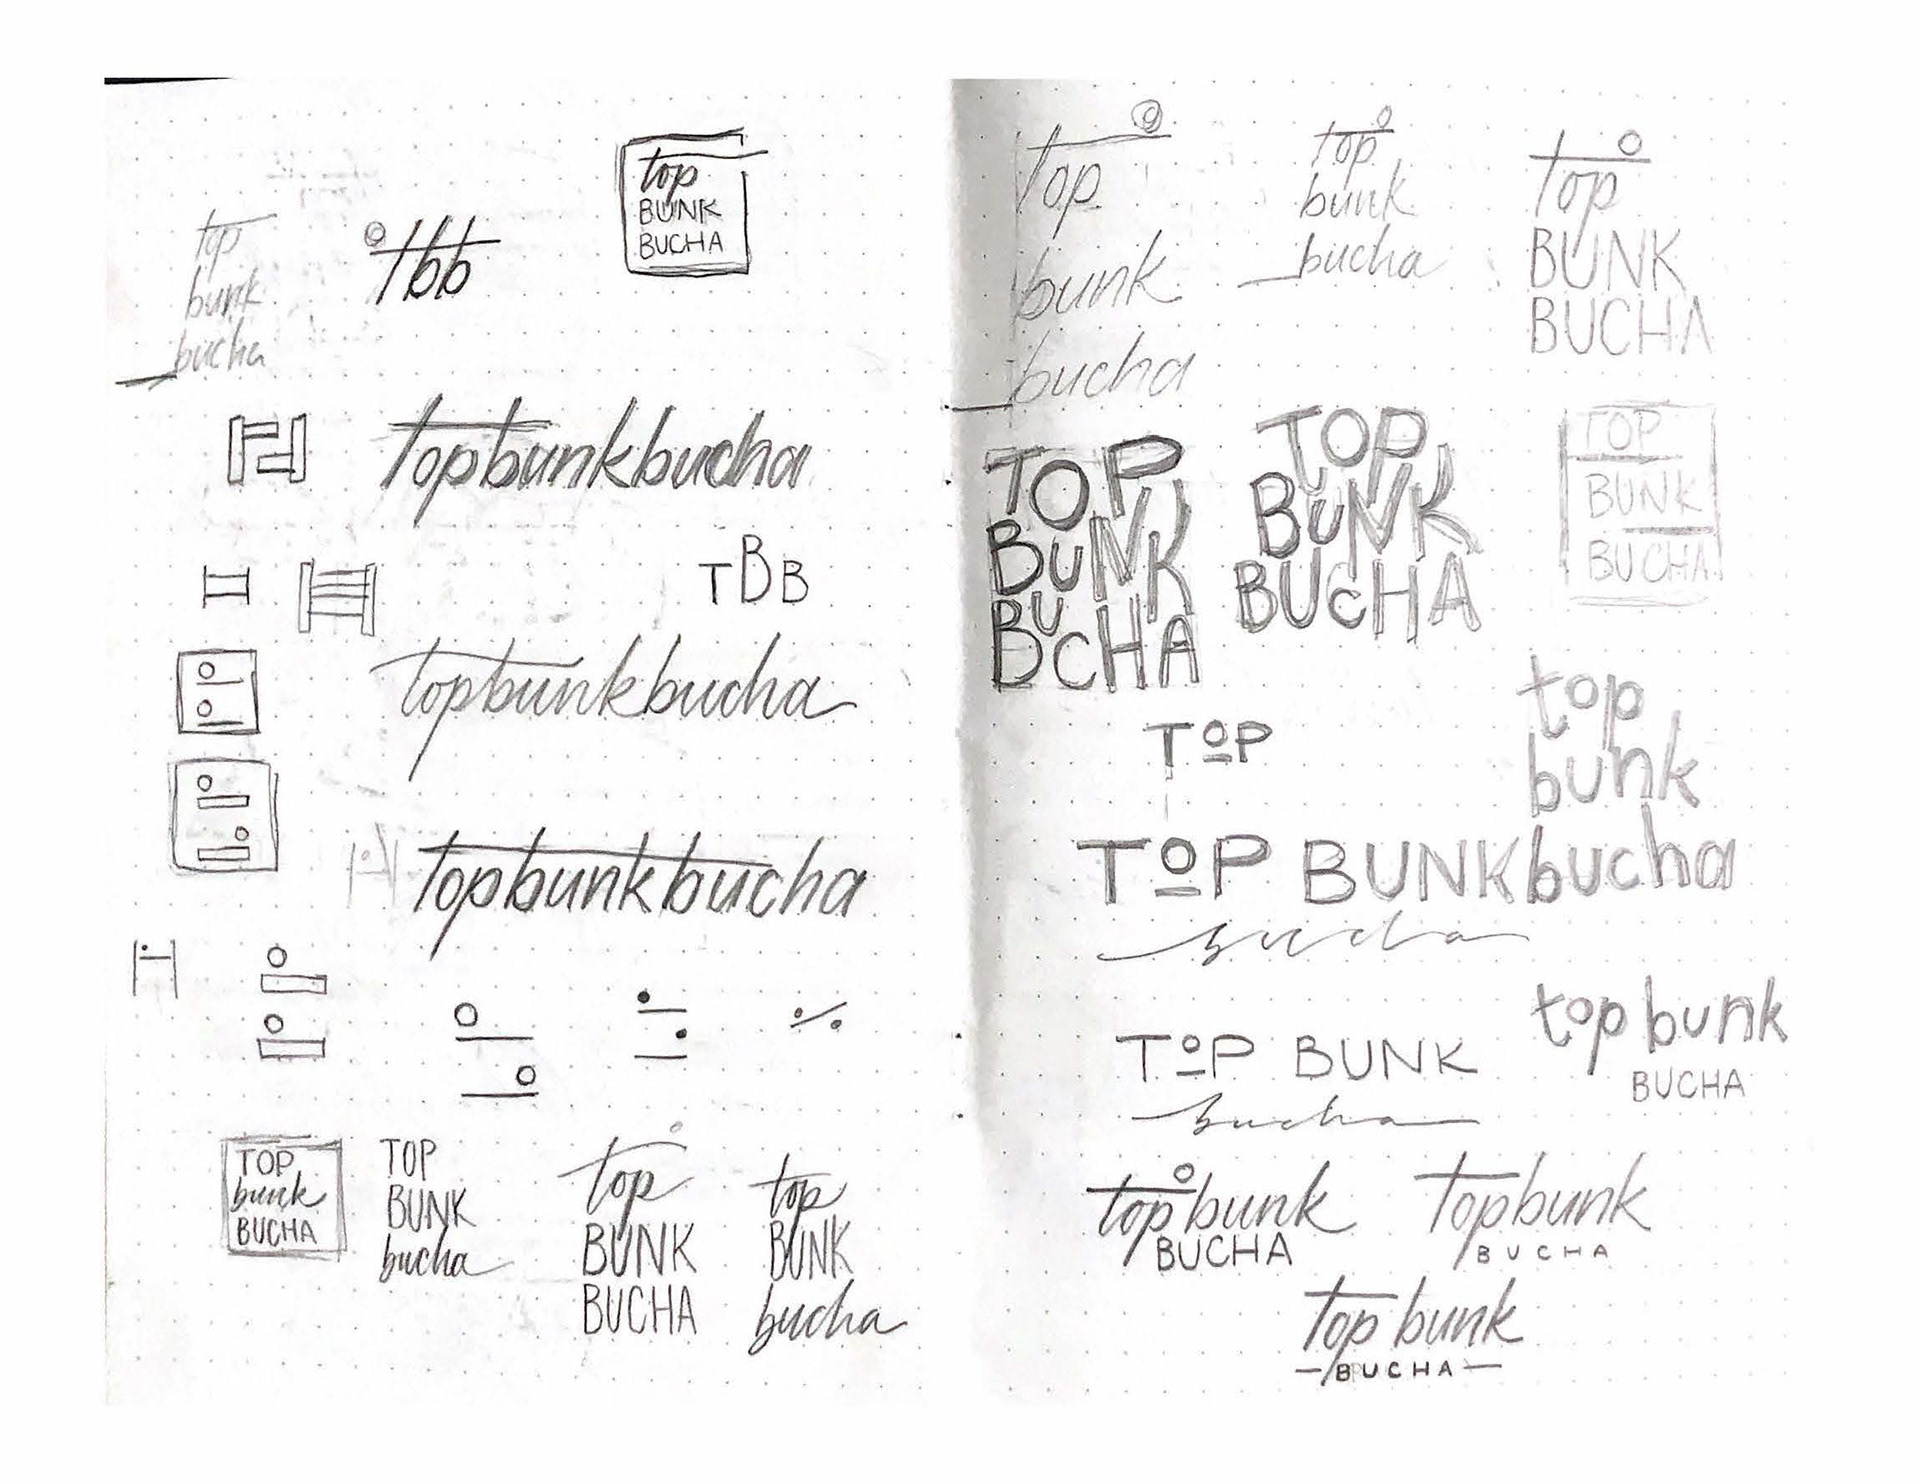 top
bunk
bucha
tbb
top
BUNK
BUCHA
topbunkbucha
TBB
topbunkbucha
topbunkbucha
TOP
bunk
BUCHA
TOP
BUNK
bucha
top
BUNK
BUCHA
top
BUNK
bucha
top
bunk
bucha
top
bunk
bucha
top
BUNK
BUCHA
TOP
BUNK
BUCHA
TOP
BUNK
BUCHA
TOP
BUNK
BUCHA
TOP
top
bunk
bucha
TOP BUNK
bucha
TOP BUNK
bucha
top bunk
BUCHA
topbunk
BUCHA
topbunk
BUCHA
top bunk
-BUCHA-